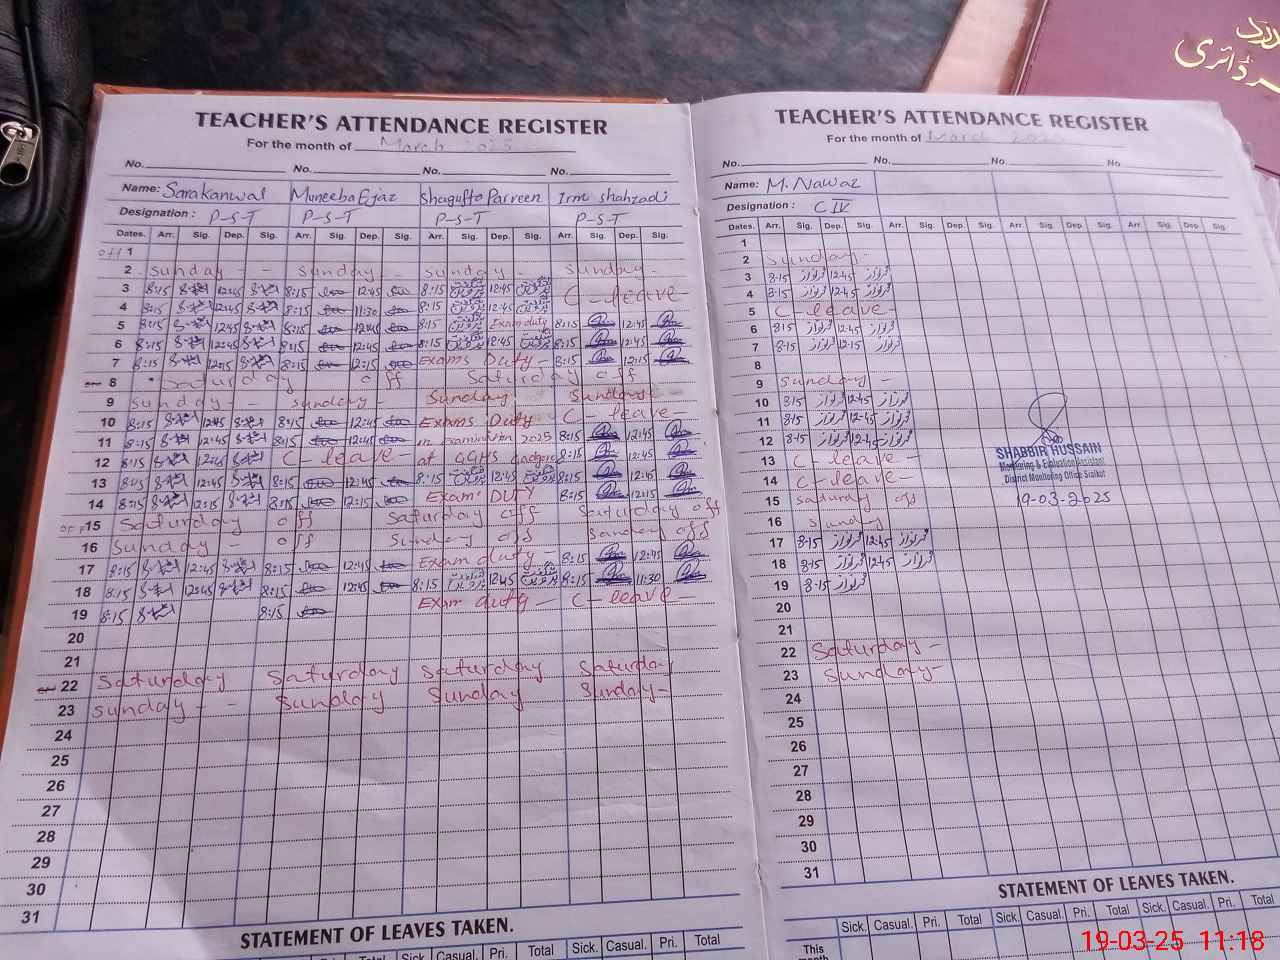 TEACHER'S ATTENDANCE REGISTER
For the month of March 2025
No. No. No. No.
Name: Sarakanwal Muneeba Ejaz Shagufta Parveen Irm shahzadi
Designation : P-S-T P-S-T P-S-T P-S-T
Dates. Arr. Sig. Dep. Sig. Arr. Sig. Dep. Sig. Arr. Sig. Dep. Sig. Arr. Sig. Dep. Sig.
off 1
2 sunday - - sunday - sunday - sunday -
3 8:15 12:45 8:15 12:45 8:15 12:45 C - leave
4 8:15 12:45 8:15 11:30 8:15 12:45
5 8:15 12:45 8:15 12:45 8:15 Exam duty 8:15 12:45
6 8:15 12:45 8:15 12:45 8:15 12:45 8:15 12:45
7 8:15 12:15 8:15 12:15 Exams Duty - 8:15 12:15
8 Saturday off Saturday off
9 sunday - - sunday - Sunday Sunday
10 8:15 12:45 8:15 12:45 Exams Duty C - leave -
11 8:15 12:45 8:15 12:45 in examination 2025 8:15 12:45
12 8:15 12:45 C - leave - at GGHS 8:15 12:45
13 8:15 12:45 8:15 12:45 8:15 12:45 8:15 12:45
14 8:15 12:15 8:15 12:15 Exam DUTY 8:15 12:15
off 15 Saturday off Saturday off Saturday off
16 Sunday - off Sunday off Sunday off
17 8:15 12:45 8:15 12:45 Exam duty - 8:15 12:45
18 8:15 12:45 8:15 12:45 8:15 12:45 8:15 11:30
19 8:15 8:15 Exam duty - C - leave -
20
21
22 Saturday Saturday Saturday Saturday
23 sunday - - Sunday Sunday Sunday -
24
25
26
27
28
29
30
31
STATEMENT OF LEAVES TAKEN.
Casual. Pri. Total Sick. Casual. Pri. Total
TEACHER'S ATTENDANCE REGISTER
For the month of March 2025
No. No. No. No
Name: M. Nawaz
Designation : C IV
Dates. Arr. Sig. Dep. Sig. Arr. Sig. Dep. Sig. Arr. Sig. Dep. Sig. Arr. Sig. Dep. Sig.
1
2 sunday -
3 8-15 نواز 12-45 نواز
4 8-15 نواز 12-45 نواز
5 C - leave -
6 8-15 نواز 12-45 نواز
7 8-15 نواز 12-15 نواز
8
9 sunday -
10 8-15 نواز 12-45 نواز
11 8-15 نواز 12-45 نواز
12 8-15 نواز 12-45 نواز
13 C - leave -
14 C - leave -
15 saturday off
16 sunday
17 8-15 نواز 12-45 نواز
18 8-15 نواز 12-45 نواز
19 8-15 نواز
20
21
22 Saturday -
23 Sunday -
24
25
26
27
28
29
30
31
SHABBIR HUSSAIN
Monitoring & Evaluation Assistant
District Monitoring Office Sialkot
19-03-2025
STATEMENT OF LEAVES TAKEN.
Sick. Casual. Pri. Total Sick. Casual. Pri. Total Sick. Casual. Pri. Total
This month
ڈائری
19-03-25 11:18